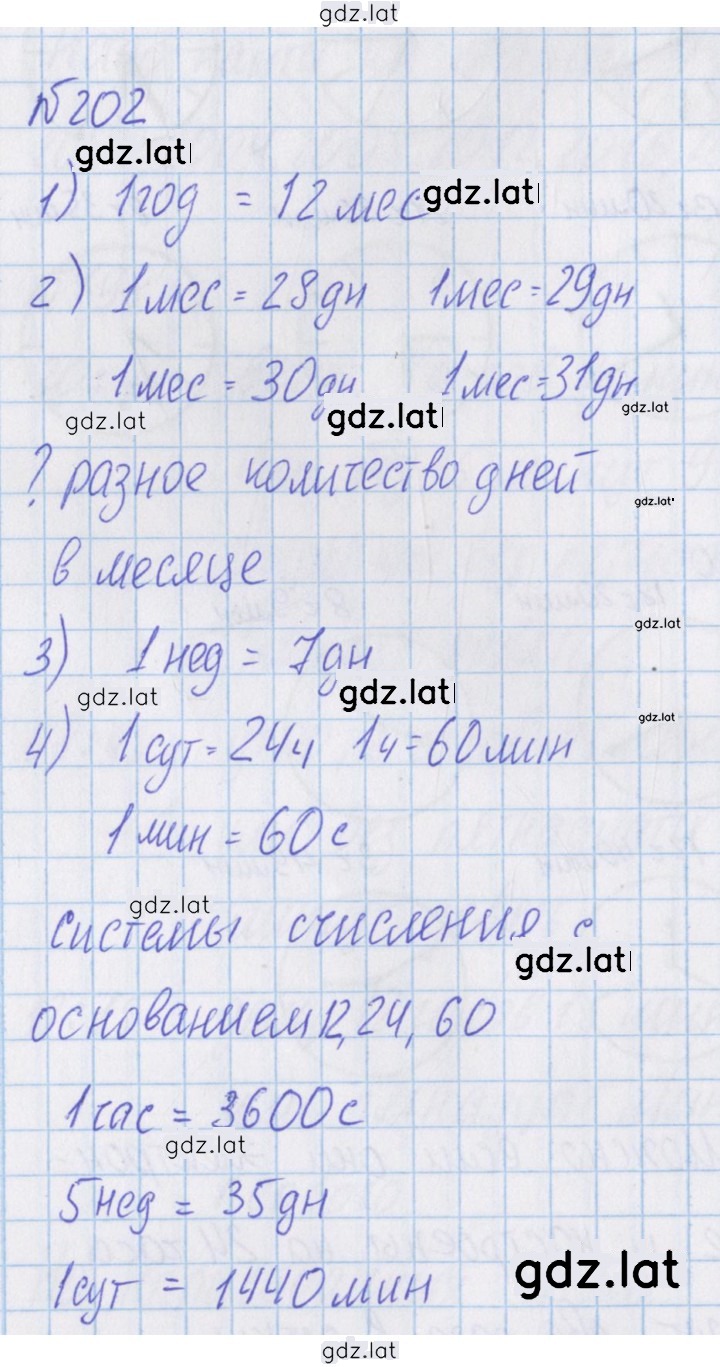 gdz.lat
№202
gdz.lat
1) 1год = 12мес gdz.lat
2) 1мес = 28дн 1мес = 29дн
1мес = 30дн 1мес = 31дн
gdz.lat gdz.lat gdz.lat
? разное количество дней
gdz.lat
в месяце
gdz.lat
3) 1нед = 7дн
gdz.lat gdz.lat
gdz.lat
4) 1сут = 24ч 1ч = 60мин
1мин = 60с
gdz.lat
Системы счисления с
gdz.lat
основанием 12, 24, 60
1час = 3600с
gdz.lat
5нед = 35дн
1сут = 1440мин
gdz.lat
gdz.lat